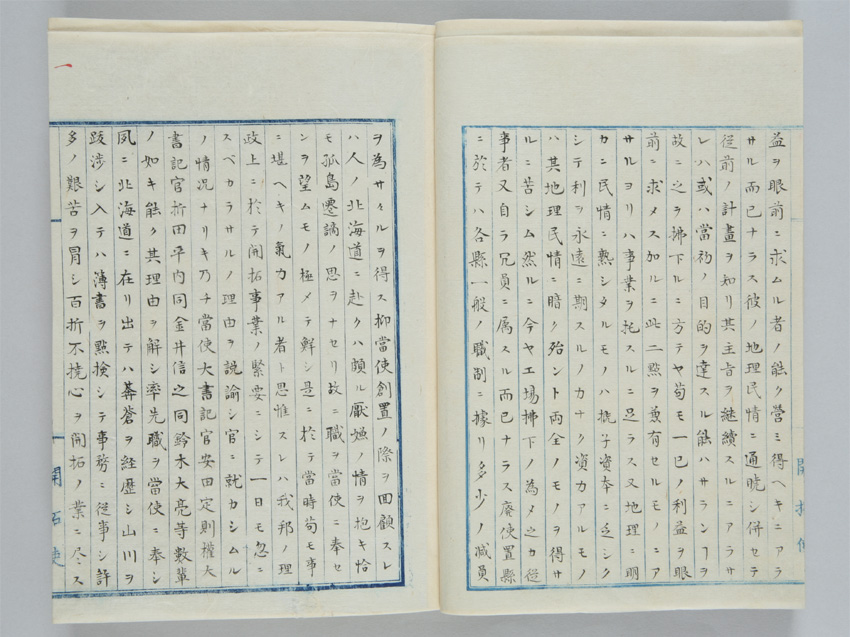 益ヲ眼前ニ求ムル者ノ能ク營ミ得ヘキニアラ
サル而已ナラス彼ノ地理民情ニ通曉シ併セテ
從前ノ計畫ヲ知リ其主旨ヲ継續スルニアラサ
レハ或ハ當初ノ目的ヲ達スル能ハサランヿヲ
故ニ之ヲ拂下ルニ方テヤ苟モ一已ノ利益ヲ眼
前ニ求メス加ルニ此二點ヲ兼有セルモノニア
サルヨリハ事業ヲ托スルニ足ラス又地理ニ明
カニ民情ニ熟シタルモノハ概子資本ニ乏シク
シテ利ヲ永遠ニ期スルノカナク資力アルモノ
ハ其地理民情ニ暗ク殆ント両全ノモノヲ得サ
ルニ苦シム然ルニ今ヤ工場拂下ノ為メ之カ從
事者又自ラ冗員ニ属スル而已ナラス廢使置縣
ニ於テハ各縣一般ノ職制ニ據リ多少ノ職員
ヲ為サヽルヲ得ス抑當使創置ノ際ヲ回顧スレ
ハ人ノ北海道ニ赴クハ頗ル厭嫌ノ情ヲ抱キ恰
モ孤島遷謫ノ思ヲナセリ故ニ職ヲ當使ニ奉セ
ンヲ望ムモノ極メテ鮮シ是ニ於テ當時苟モ事
ニ堪ヘキノ氣力アル者ト思惟スレハ我邦ノ理
政上ニ於テ開拓事業ノ緊要ニシテ一日モ忽ニ
スベカラサルノ理由ヲ説諭シ官ニ就カシムル
ノ情況ナリキ乃チ當使大書記官安田定則權大
書記官折田平内同金井信之同鈴木大亮等數輩
ノ如キ能ク其理由ヲ解シ率先職ヲ當使ニ奉シ
夙ニ北海道ニ在リ出テハ莽蒼ヲ経歴シ山川ヲ
跋渉シ入テハ簿書ヲ點撿シテ事務ニ從事シ許
多ノ艱苦ヲ冒シ百折不撓心ヲ開拓ノ業ニ尽ス
一
開拓使
開拓使